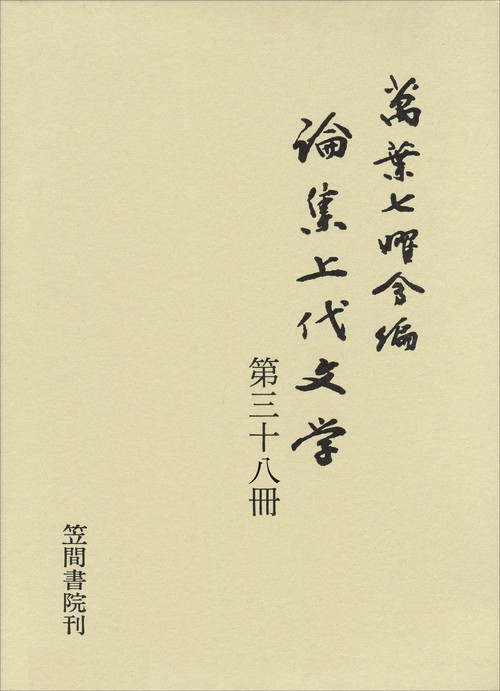 萬葉七曜会編
論集上代文学
第三十八冊
笠間書院刊